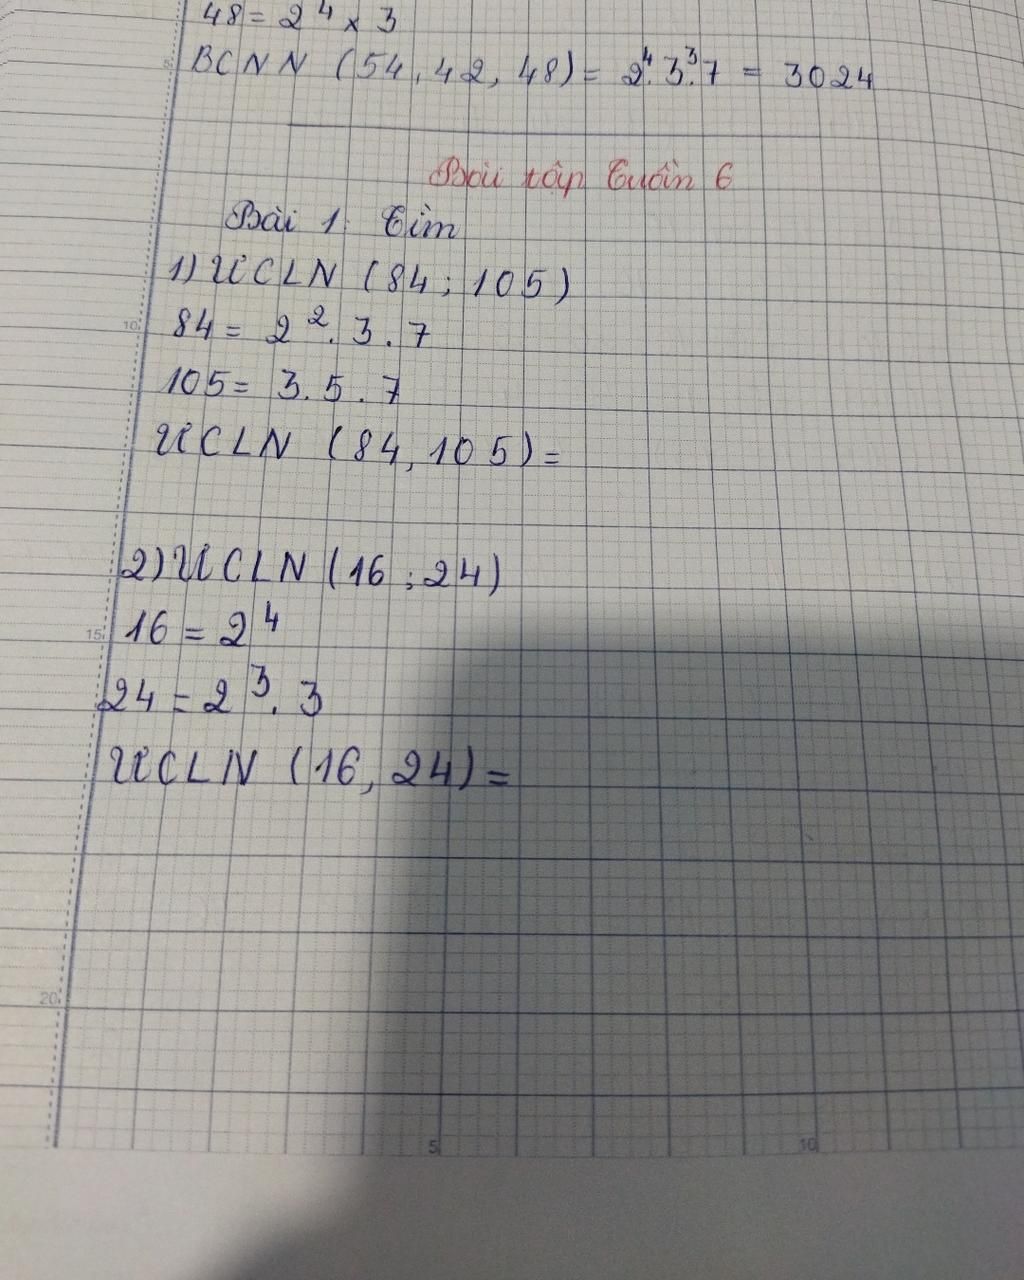 48 = 2⁴ x 3
5 BCNN (54, 42, 48) = 2⁴.3³.7 = 3024
Bài tập Tuần 6
Bài 1: Tìm
1) ƯCLN (84; 105)
10 84 = 2². 3 . 7
105 = 3. 5 . 7
ƯCLN (84, 105) =
2) ƯCLN (16 ; 24)
15 16 = 2⁴
24 = 2³. 3
ƯCLN (16, 24) =
20
5 10